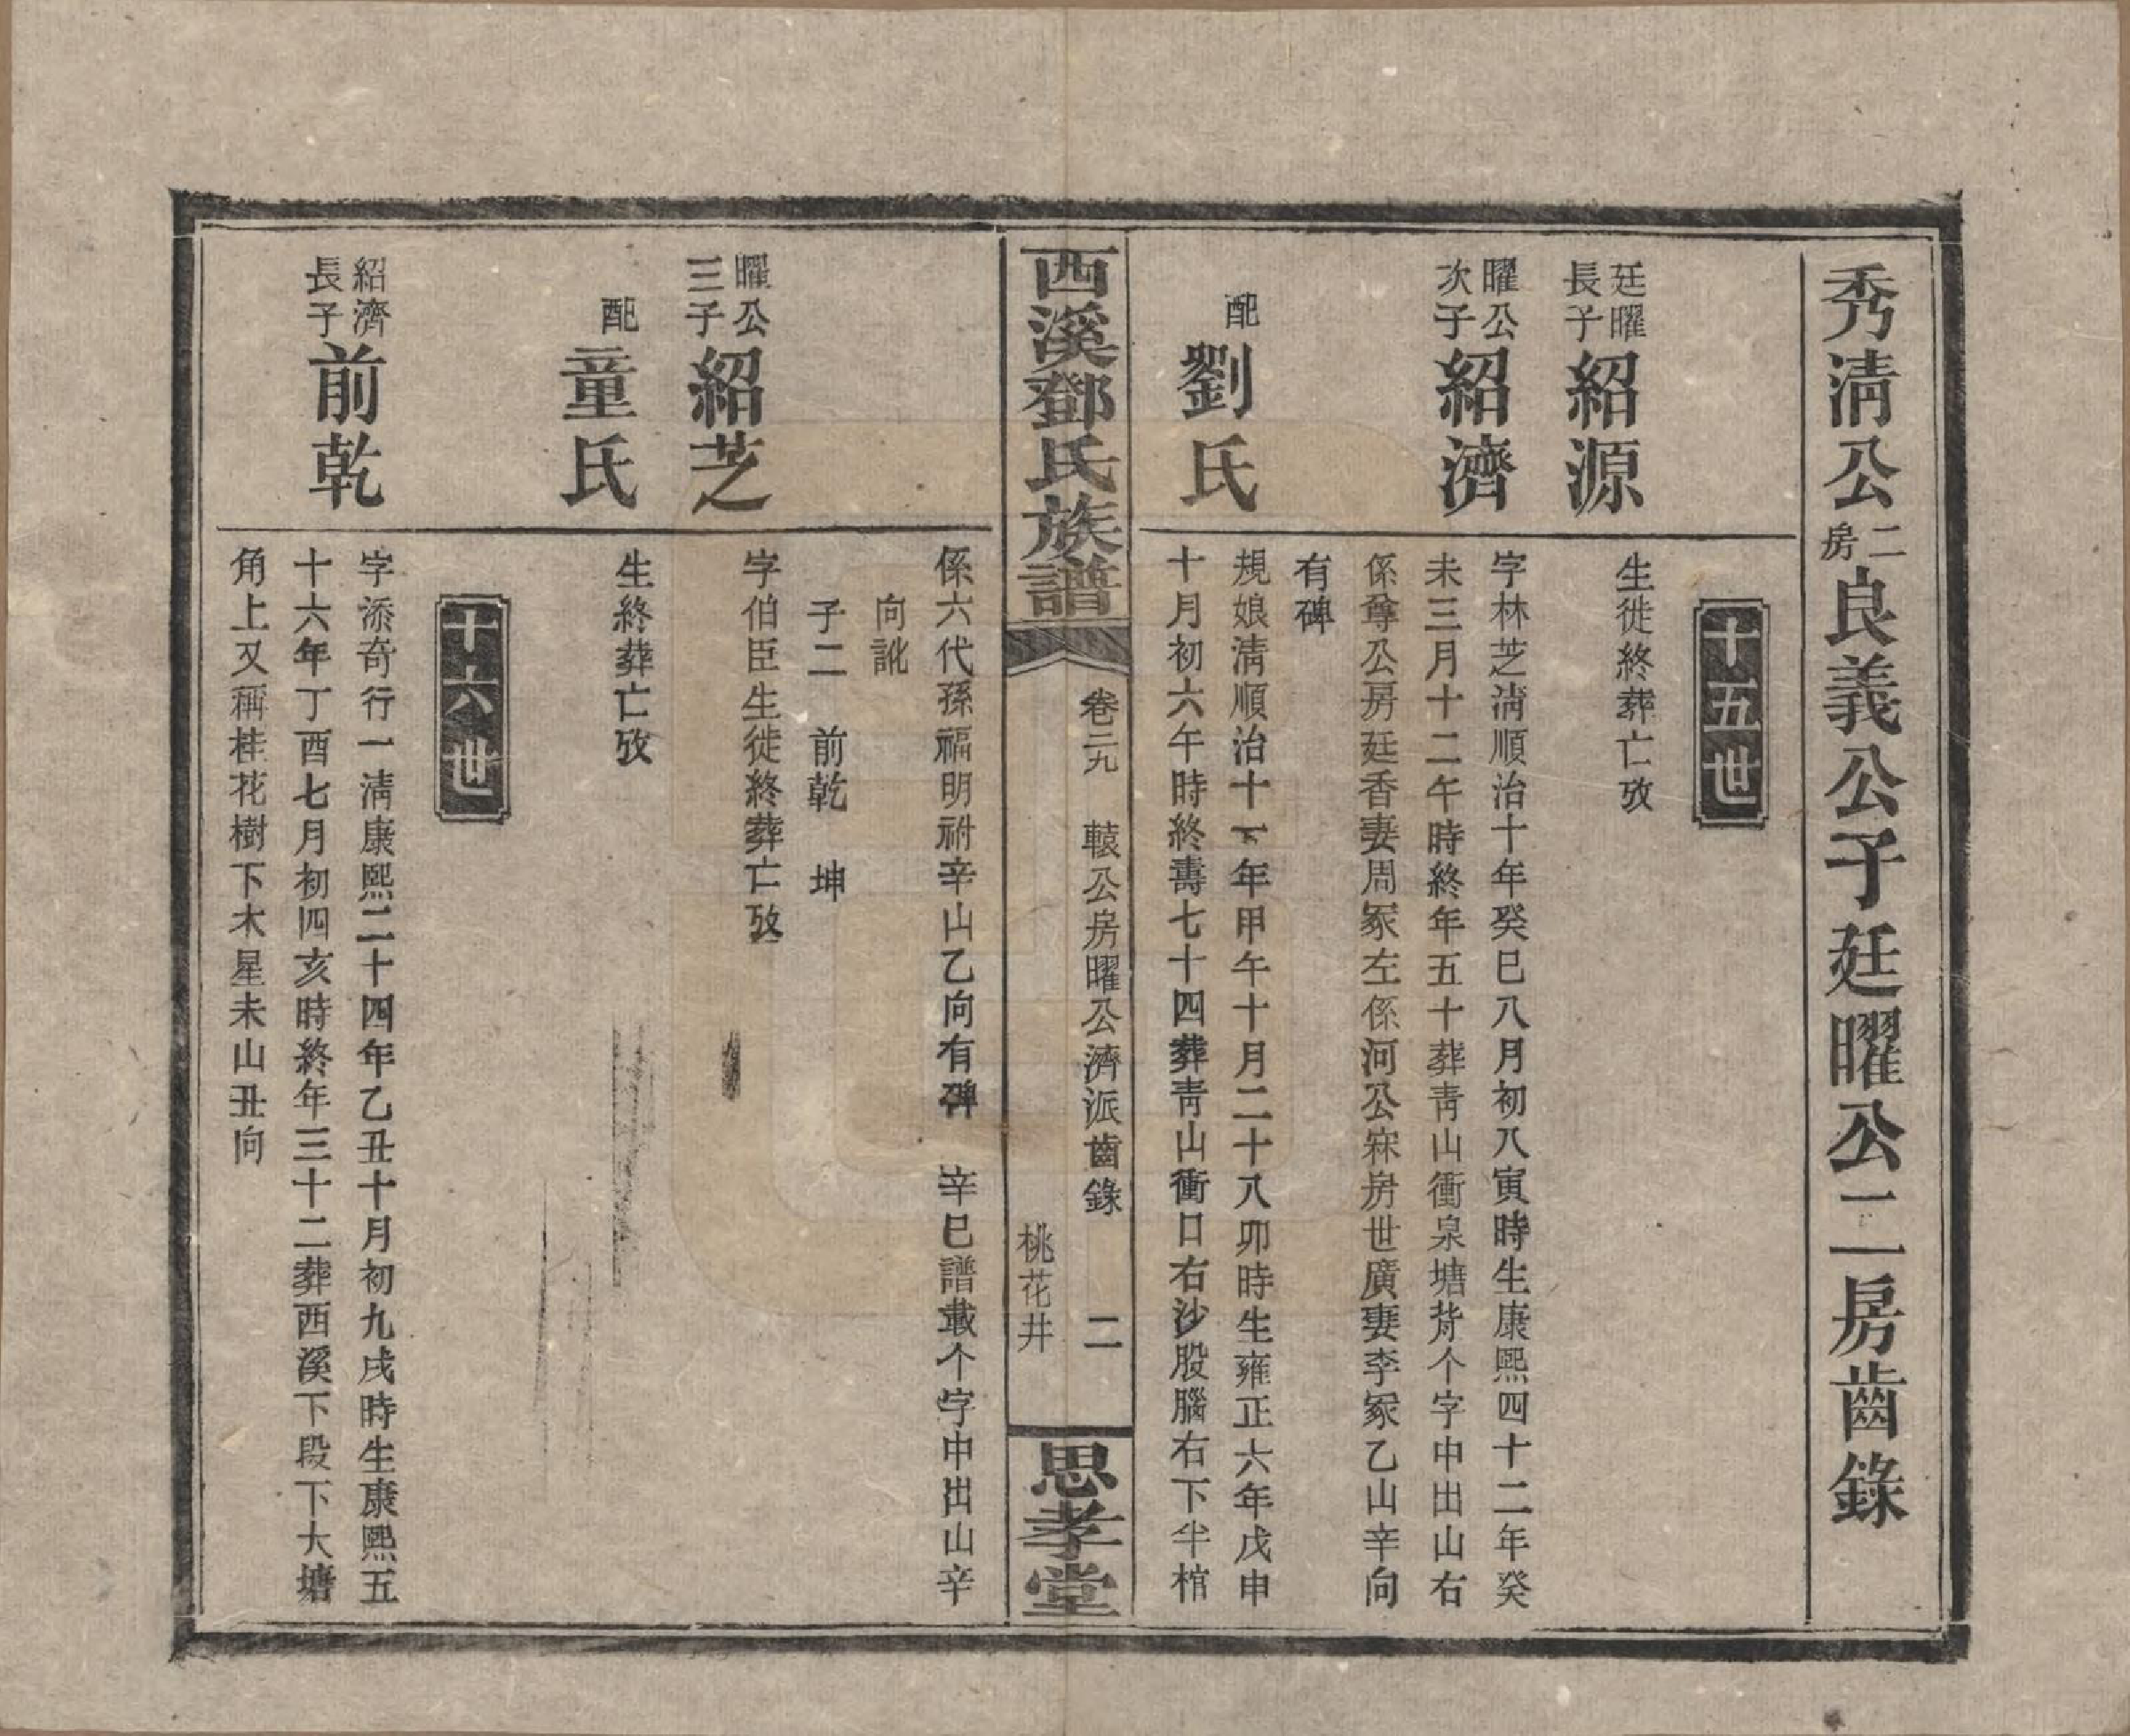 秀清公二房良義公子廷曜公二房齒錄
十五世
廷曜長子紹源
生徙終葬亡攷
曜公次子紹濟
字林芝清順治十年癸巳八月初八寅時生康熙四十二年癸
未三月十二午時終年五十葬青山衝泉塘背个字中出山右
係尊公房廷香妻周冢左係河公寀房世廣妻李冢乙山辛向
有碑
配劉氏
規娘清順治十一年甲午十月二十八卯時生雍正六年戊申
十月初六午時終壽七十四葬青山衝口右沙股腦右下半棺
西溪鄧氏族譜
卷二九 轅公房曜公濟派齒錄 二
桃花井
思孝堂
係六代孫福明祔辛山乙向有碑 辛巳譜載个字中出山辛
向訛
子二 前乾 坤
曜公三子紹芝
字伯臣生徙終葬亡攷
配童氏
生終葬亡攷
十六世
紹濟長子前乾
字添奇行一清康熙二十四年乙丑十月初九戌時生康熙五
十六年丁酉七月初四亥時終年三十二葬西溪下段下大塘
角上又稱桂花樹下木星未山丑向